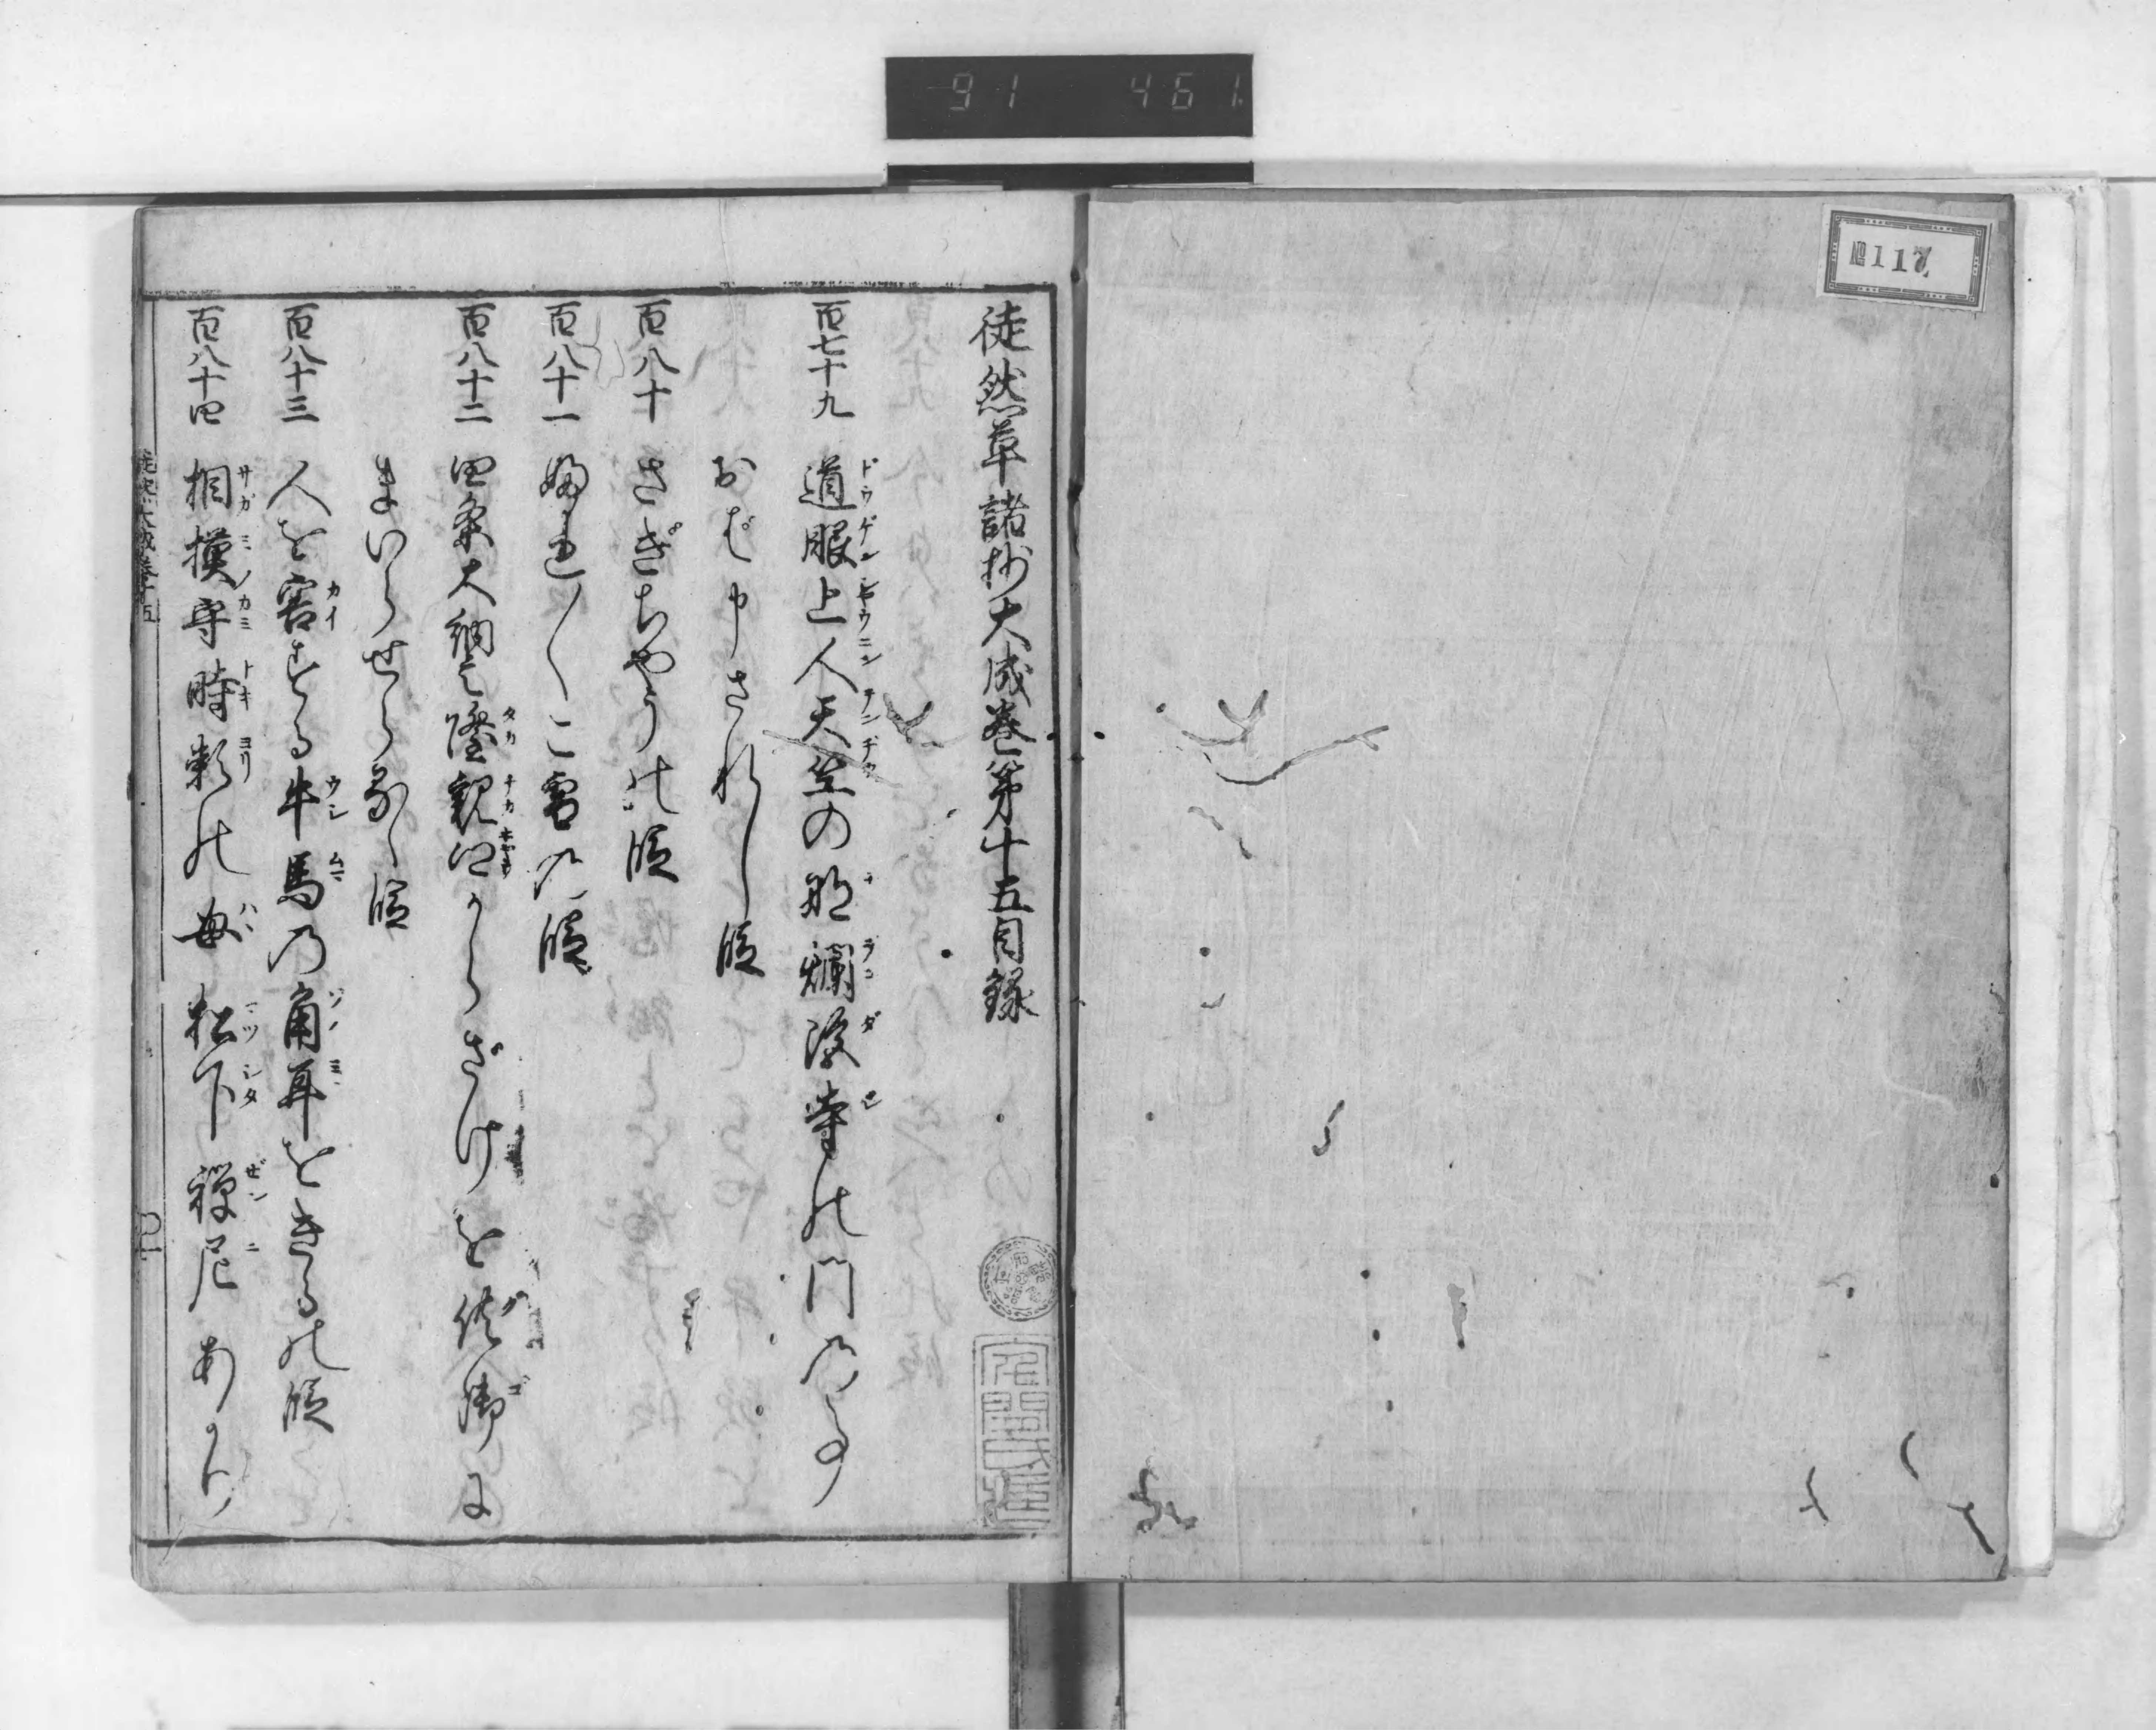 91 461
117
徒然草諸抄大成巻第十五目録
百七十九 道眼上人天竺の那爛陀寺の門の事
申されし段
百八十 さぎちやうの段
百八十一 ふれ〳〵こ雪の段
百八十二 四条大納言隆親卿からざけを供御に
まいらせらるゝ段
百八十三 人を害する牛馬の角耳をきるの段
百八十四 相摸守時頼の母松下禅尼あかり